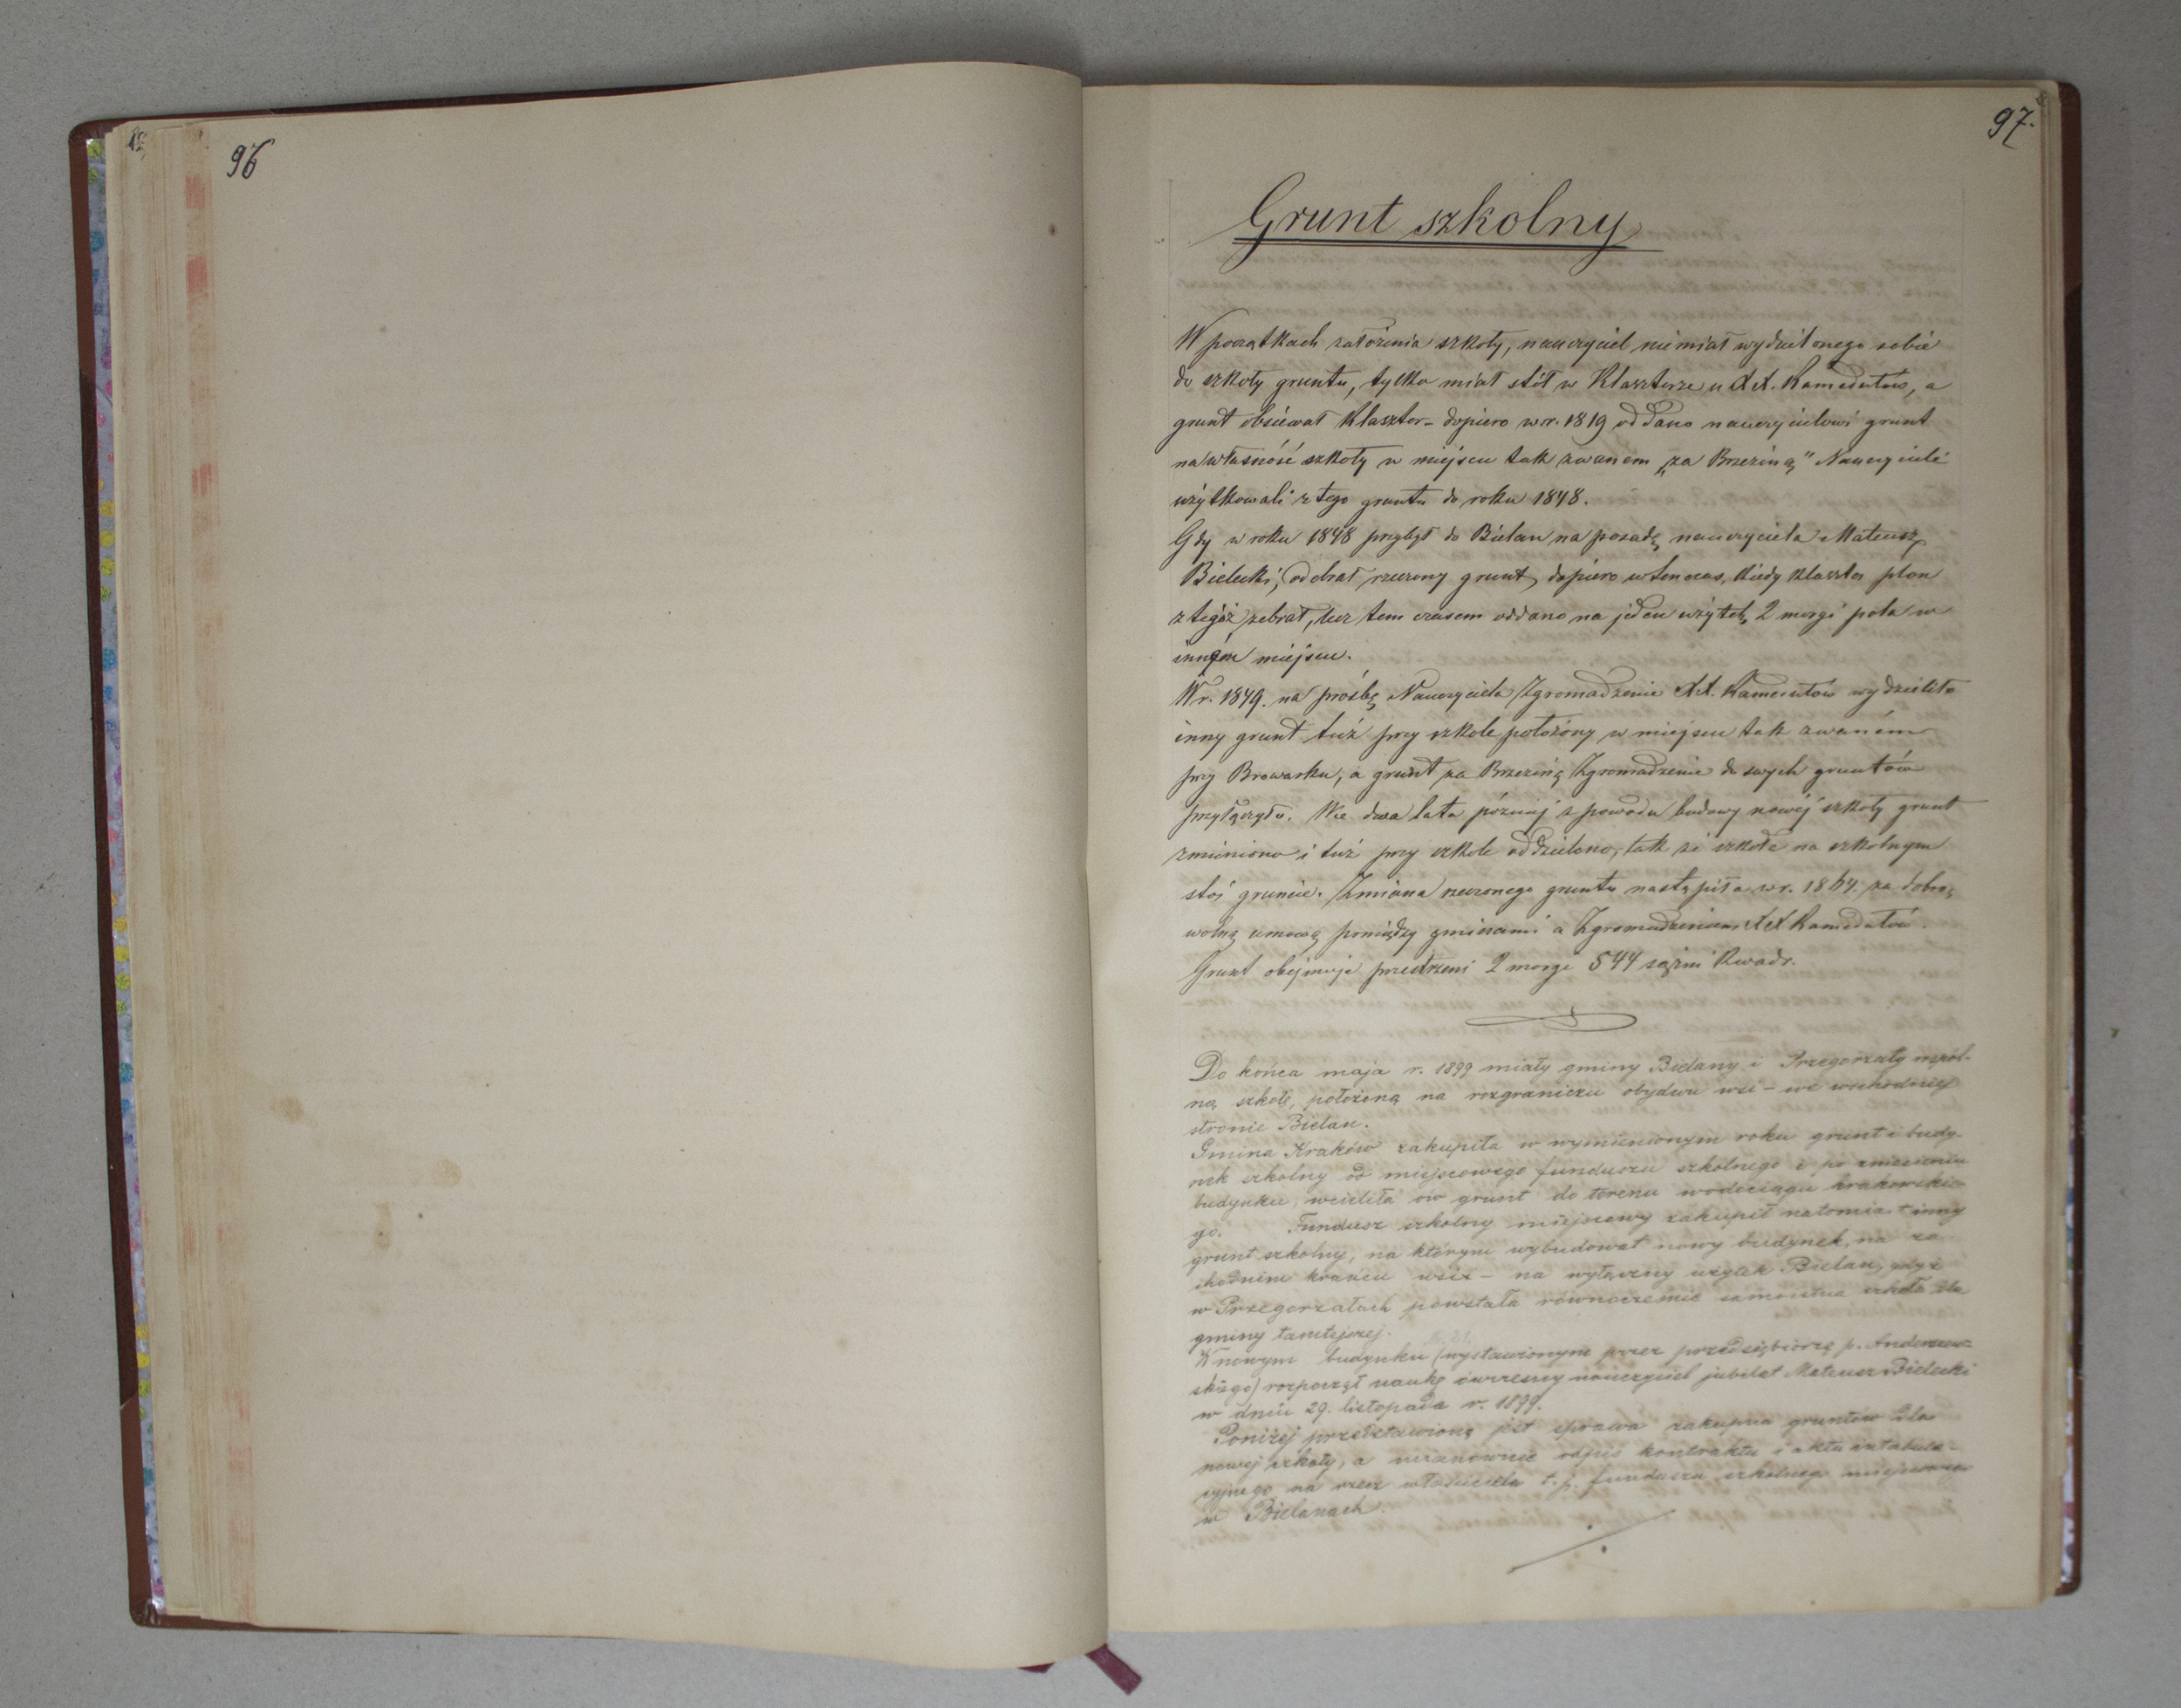 96
97.
Grunt szkolny
W początkach założenia szkoły, nauczyciel nie miał wydzielonego sobie
do szkoły gruntu, tylko miał stół w Klasztorze u XX. Kamedułów, a
grunt obsiewał Klasztor – dopiero w r. 1819 oddano nauczycielowi grunt
na własność szkoły w miejscu tak zwanem „za Brzeziną" Nauczyciele
użytkowali z tego gruntu do roku 1848.
Gdy w roku 1848 przybył do Bielan na posadę nauczyciela Mateusz
Bielecki, odebrał rzeczony grunt, dopiero wtenczas, kiedy klasztor plon
z tegóż zebrał, lecz tem czasem oddano na jeden użytek 2 morgi pola w
innem miejscu.
W r. 1849. na prośbę Nauczyciela Zgromadzenie XX. Kamedułów wydzieliło
inny grunt tuż przy szkole położony w miejscu tak zwaném
przy Browarku, a grunt za Brzeziną Zgromadzenie do swych gruntów
przyłączyło. We dwa lata później z powodu budowy nowéj szkoły grunt
zmieniono i tuż przy szkole oddzielono, tak że szkoła na szkolnym
stoi gruncie. Zmiana rzeczonego gruntu nastąpiła w r. 1864. za dobro
wolną umową pomiędzy gminami a Zgromadzeniem XX Kamedułów.
Grunt obejmuje przestrzeni 2 morgi 544 sążni Kwadr.
Do końca maja r. 1899 miały gminy Bielany i Przegorzały wspól-
ną szkołę, położoną na rozgraniczu obydwu wsi – we wschodniej
stronie Bielan.
Gmina Kraków zakupiła w wymienionym roku grunt i budy-
nek szkolny od miejscowego funduszu szkolnego i po zniesieniu
budynku, wcieliła ów grunt do terenu wodociągu krakowskie-
go. Fundusz szkolny miejscowy zakupił natomiast inny
grunt szkolny, na którym wybudował nowy budynek, na za-
chodnim krańcu wsi – na wyłączny użytek Bielan, gdyż
w Przegorzałach powstała równocześnie samoistna szkoła dla
gminy tamtejszej.
W nowym budynku (wystawionym przez przedsiębiorcę p.
skiego) rozpoczął naukę ówczesny nauczyciel jubilat Mateusz Bielecki
w dniu 29. listopada r. 1899.
Poniżej przedstawioną jest sprawa zakupna gruntów dla
nowej szkoły, a mianowicie odpis kontraktu i aktu intabula-
cyjnego na rzecz właściciela t. j. funduszu szkolnego miejscowego
w Bielanach.